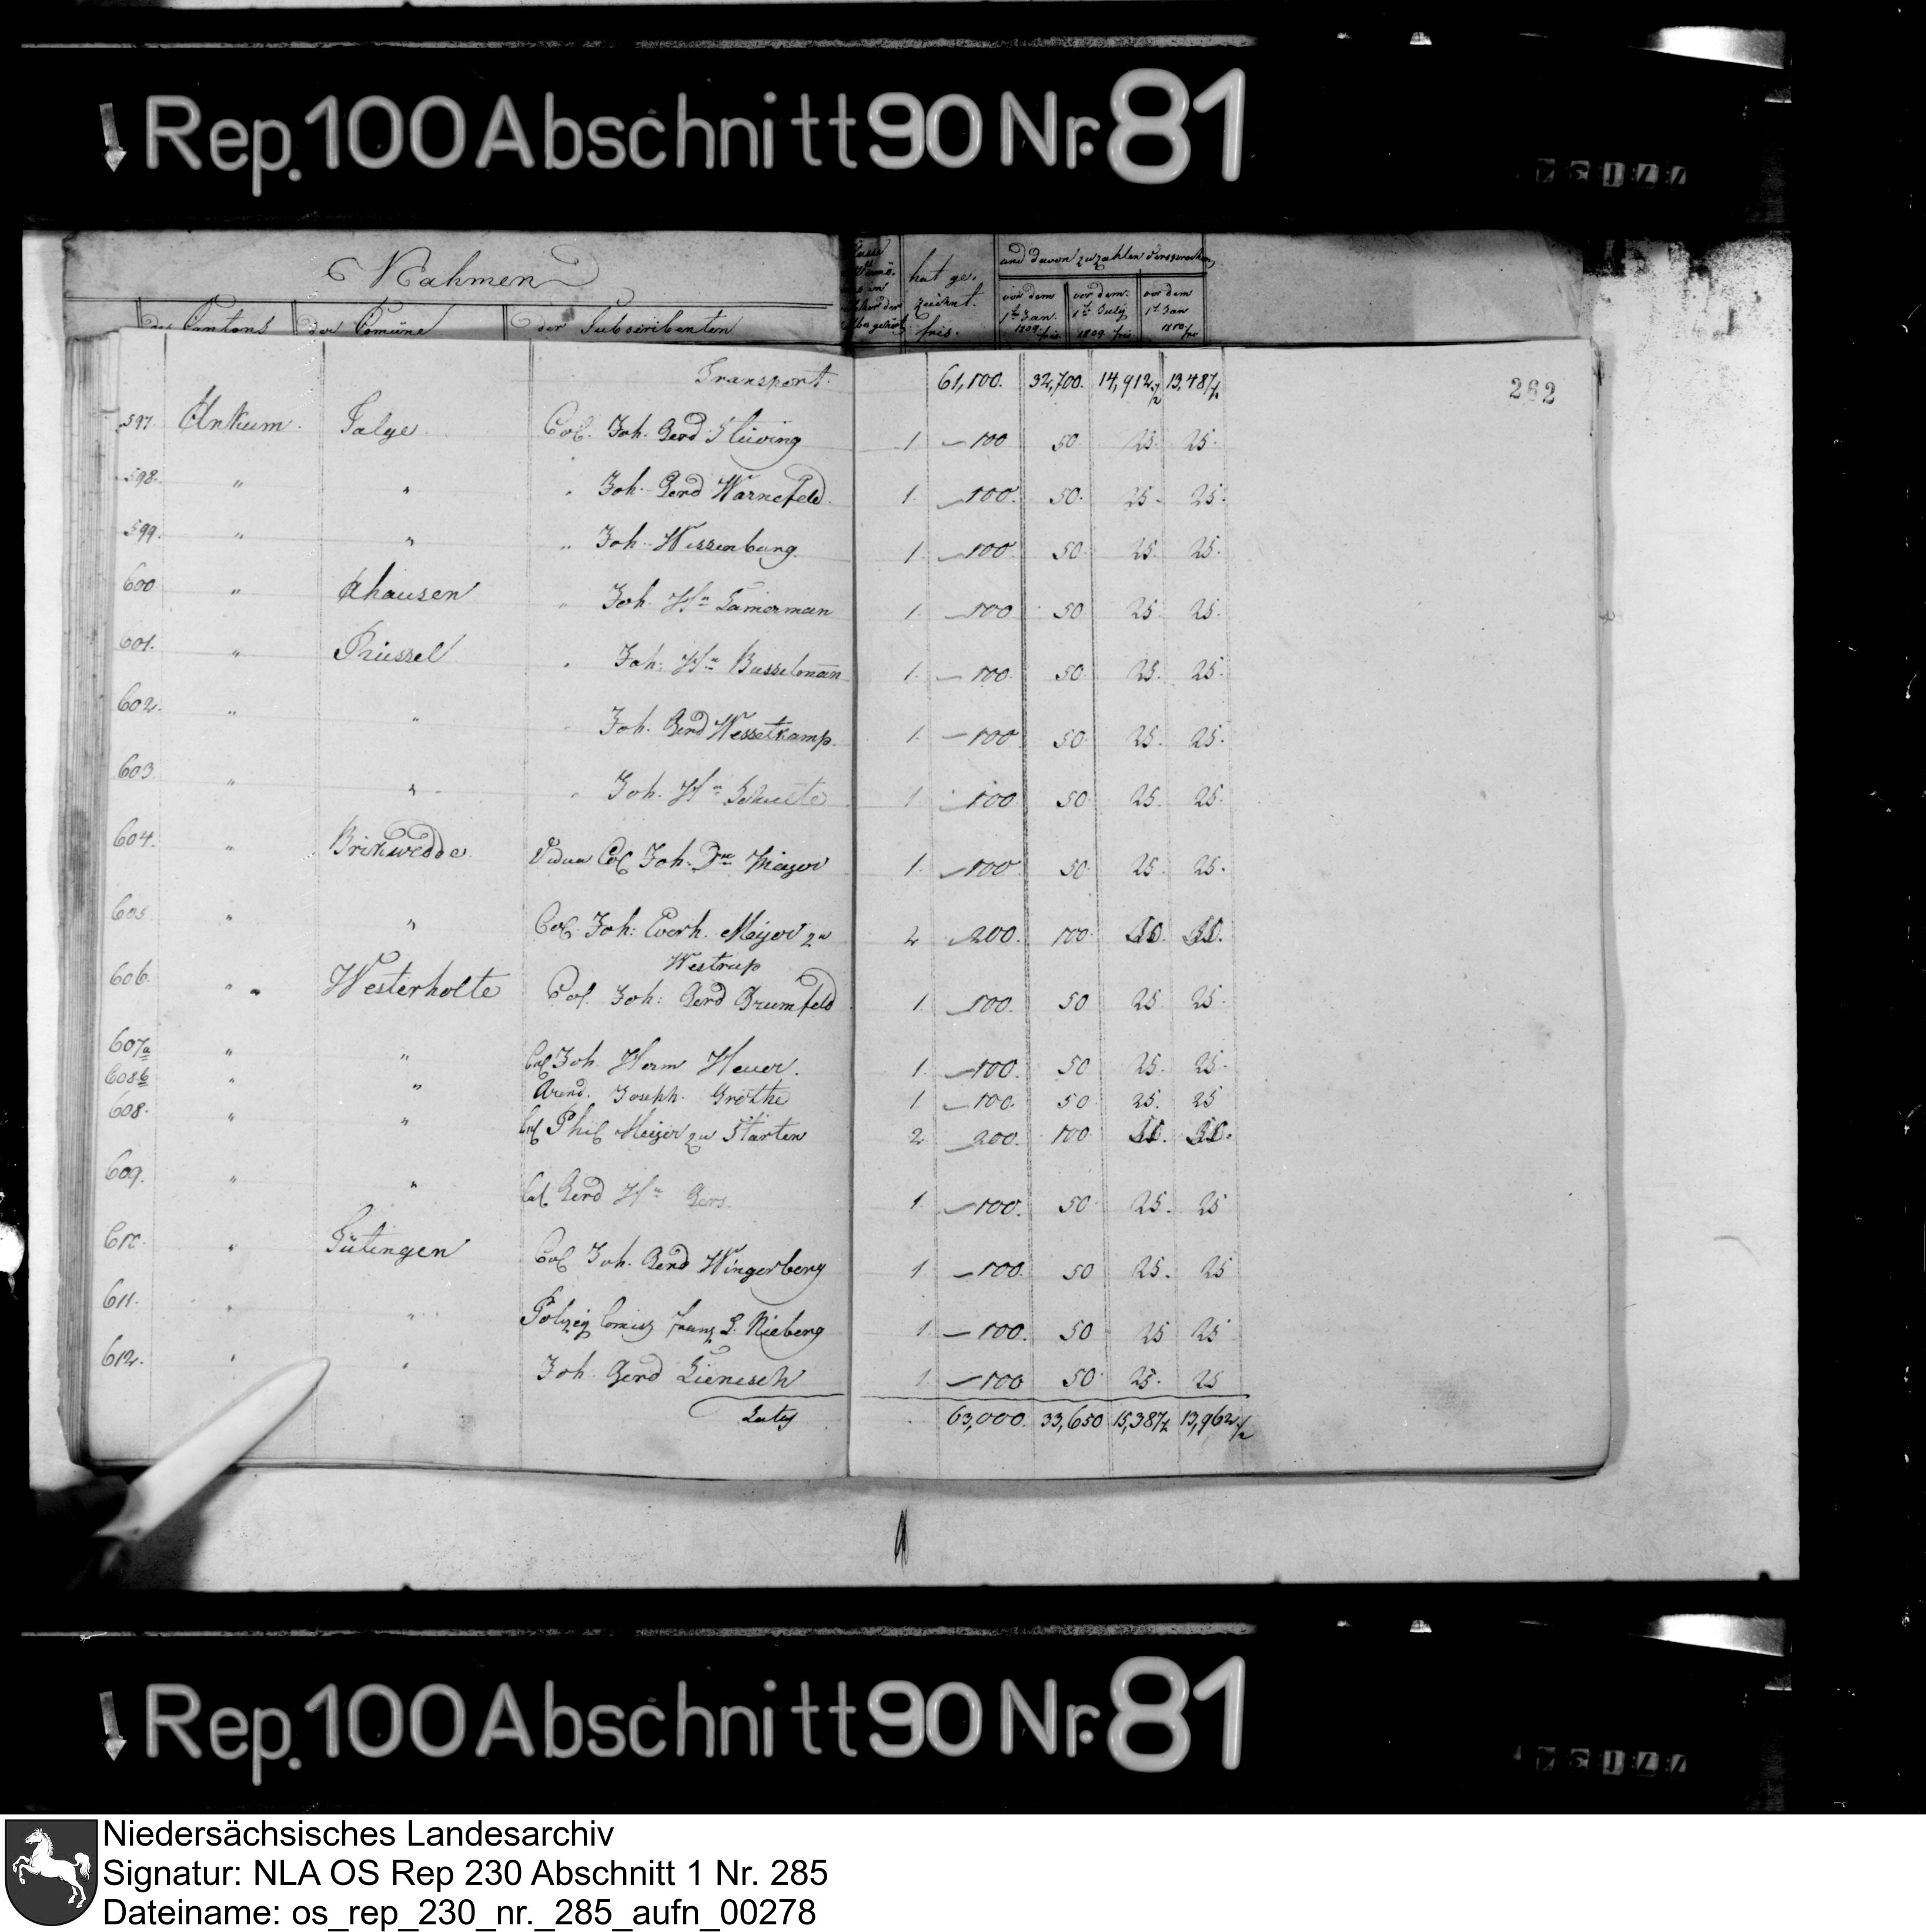 Rep. 100 Abschnitt 90 Nr. 81
Nahmen
des Cantons der Comüne der Subscribenten
hat ge- zeichnet. frcs.
und davon zu zahlen versprochen,
vor dem 1ten Jan. 1809. frcs vor dem 1ten July 1809 frcs vor dem 1t Jan 1810. frc
262
Transport. 61,100. 32,700. 14,912 1/2 13,487 1/2
597. Ankum. Talge Col. Joh. Gerd Stüving 1 — 100 50 25. 25.
598. " " " Joh. Gerd Warnefeld. 1. — 100. 50. 25. 25.
599. " " " Joh. Wissenburg. 1 — 100. 50. 25. 25.
600. " Ahausen " Joh. Hn Lämerman 1. — 100 50 25. 25.
601. " Prüssel " Joh: Hn Busselman 1. — 100. 50. 25. 25.
602. " " " Joh. Gerd Wesselkamp. 1. — 100. 50. 25. 25.
603 " " " Joh. Hn Schulte 1 — 100 50 25. 25.
604. " Brickwedde Vidua Col Joh. Meyer 1. — 100 50 25. 25.
605 " " Col. Joh: Everh. Meyer zu 2 200. 100 50. 50.
Westrup
606. " Westerholte Col. Joh: Gerd Brumfeld 1 — 100. 50 25 25.
607a " " Col Joh. Herm Heuer. 1. — 100. 50 25. 25.
608b " " Arend. Joseph. Gröthe 1. — 100. 50 25. 25
608. " " Col Phil Meijer zu Starten 2 200. 100 50. 50.
609. " " Col Gerd Hn Gers. 1. — 100. 50. 25. 25
610. " Sütingen Col Joh. Gerd Wingerberg 1. — 100. 50 25. 25
611. " " Polizey Comiss Franz Nieberg 1. — 100. 50 25 25
612. " " Joh. Gerd Lienesch 1 — 100 50 25. 25
Latus 63,000. 33,650 15,387 1/2 13,962 1/2
Rep. 100 Abschnitt 90 Nr. 81
Niedersächsisches Landesarchiv
Signatur: NLA OS Rep 230 Abschnitt 1 Nr. 285
Dateiname: os_rep_230_nr._285_aufn_00278